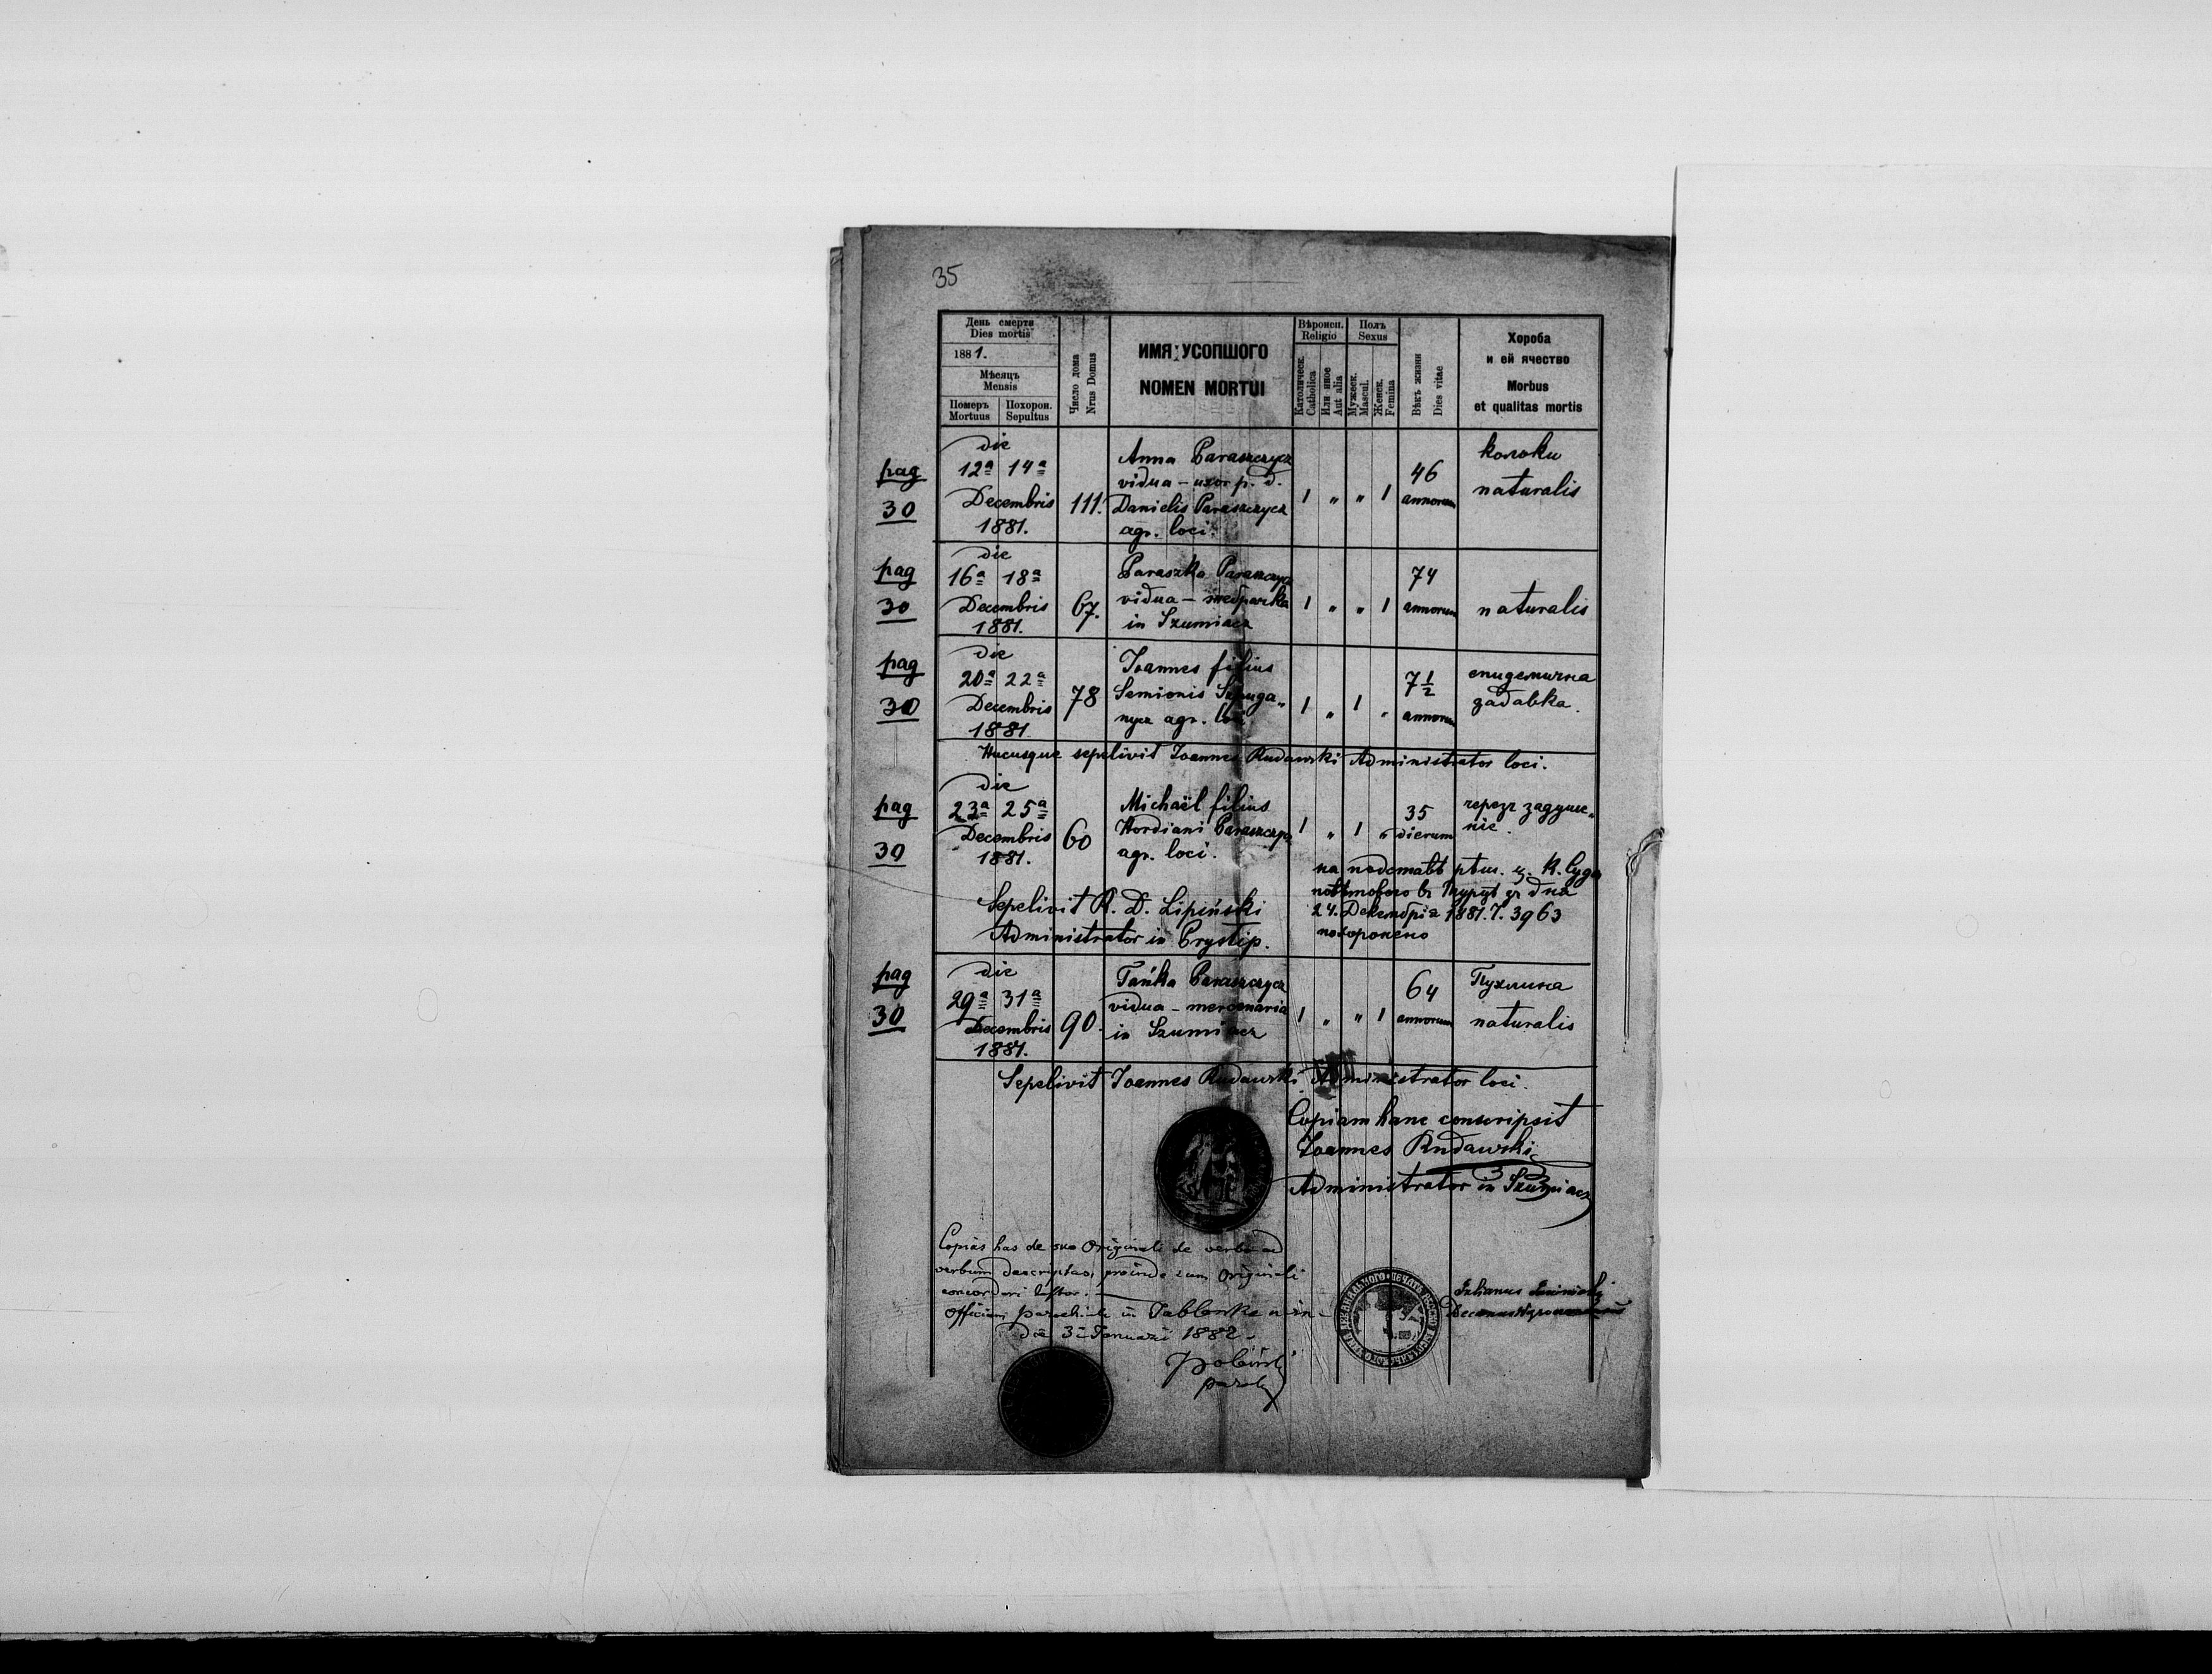 35
День смерти
Dies mortis
1881.
Мѣсяцъ
Mensis
Померъ Похорон.
Mortuus Sepultus
Число дома
Nrus Domus
ИМЯ УСОПШОГО
NOMEN MORTUI
Вѣроисп.
Religio
Католическ.
Catholica
Или иное
Aut alia
Полъ
Sexus
Мужеск.
Mascul.
Женск.
Femina
Вѣкъ жизни
Dies vitae
Хороба
и ей ячество
Morbus
et qualitas mortis
pag
30
die
12ª 14ª
Decembris
1881.
111.
Anna Paraszczycz
vidua – uxor p. d.
Danielis Paraszczycz
agr. loci.
1 „ „ 1
46
annorum
колоки
naturalis
pag
30
die
16ª 18ª
Decembris
1881.
67.
Paraszka Paraszczycz
vidua – жебрачка
in Szumiacz
1 „ „ 1
74
annorum
naturalis
pag
30
die
20ª 22ª
Decembris
1881
78
Joannes filius
Semionis
agr. loci
1 „ 1 „
7 1/2
annorum
епидемична
задавка.
Hucusque sepelivit Joannes Rudawski Administrator loci.
pag
30
die
23ª 25ª
Decembris
1881.
60
Michaël filius
Hordiani Paraszczycz
agr. loci.
1 „ 1 „
35
dierum
черезъ задуше„
ніе.
на подставѣ рѣш. ц. к. Суда
повѣтового въ Турцѣ зъ дня
24. Декембрія 1881. Ч. 3963
похоронено
Sepelivit R. D. Lipiński
Administrator in Prystip.
pag
30
die
29ª 31ª
Decembris
1881.
90.
Tańka Paraszczycz
vidua – mercenaria
in Szumiacz
1 „ „ 1
64
annorum
Пухлина
naturalis
Sepelivit Joannes Rudawski Administrator loci.
Copiam hanc conscripsit
Joannes Rudawski
Administrator in Szumiacz
Copias has de suo Originali de verbo ad
verbum descriptas, proinde cum Originali
concordari testor.
Officium parochiale in Jablonka
die 3 Januarii 1882
Julianus
Decanus